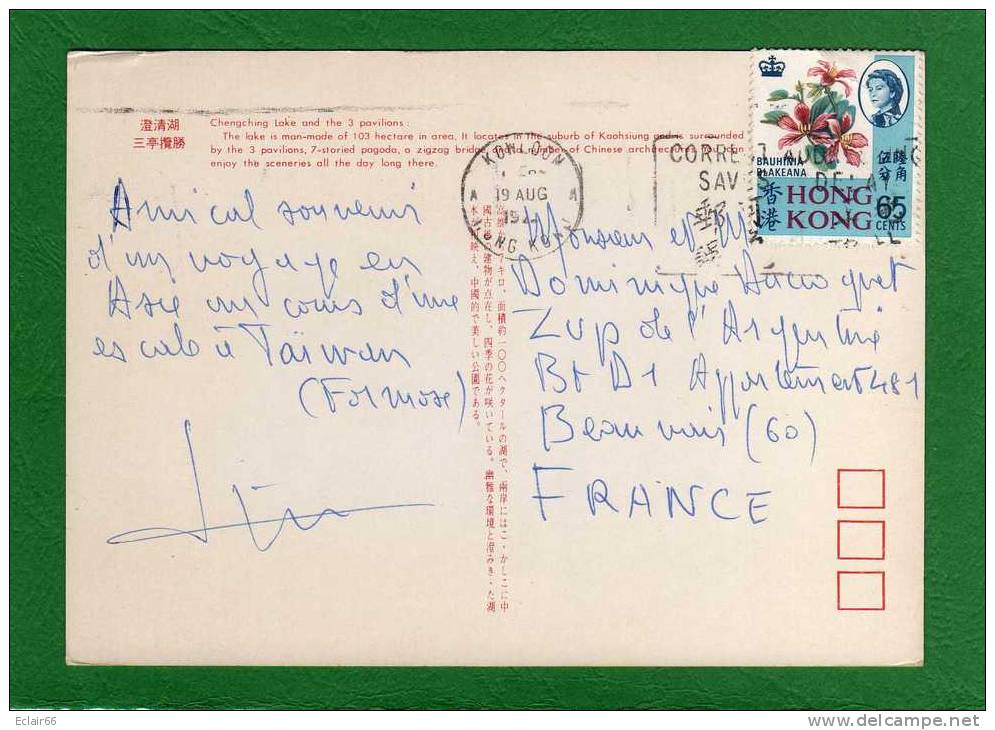 澄清湖
三亭攬勝
Chengching Lake and the 3 pavilions:
The lake is man-made of 103 hectare in area. It locates in the suburb of Kaohsiung and is surrounded
by the 3 pavilions, 7-storied pagoda, a zigzag bridge and a number of Chinese architectures. You can
enjoy the sceneries all the day long there.
KOWLOON
19 AUG
HONG KONG
CORRECT ADDRESSING
SAVES DELAY
BAUHINIA
BLAKEANA
伍分 陸角
香港
HONG
KONG
65
CENTS
Amical souvenir
d'un voyage en
Asie au cours d'une
escale à Taïwan
(Formose)
Monsieur et Mme
Dominique
Zup de l'Argentine
Bt D1 Appartement 481
Beauvais (60)
FRANCE
キロ、面積約一〇〇ヘクタールの湖で、兩岸にはこゝかしこに中
國古 建物が点在し、四季の花が咲いている。幽雅な環境と澄みきった湖
水 映え、中國的で美しい公園である。
Eclair66
www.delcampe.net